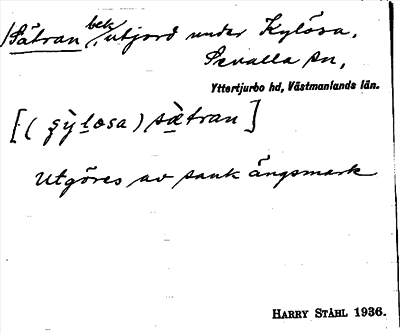 Sätran bek., utjord under Kylösa,
Sevalla sn,
Yttertjurbo hd, Västmanlands län.
[( ɕỳlosa) sæ̀tran]
Utgöres av sank ängsmark
HARRY STÅHL 1936.